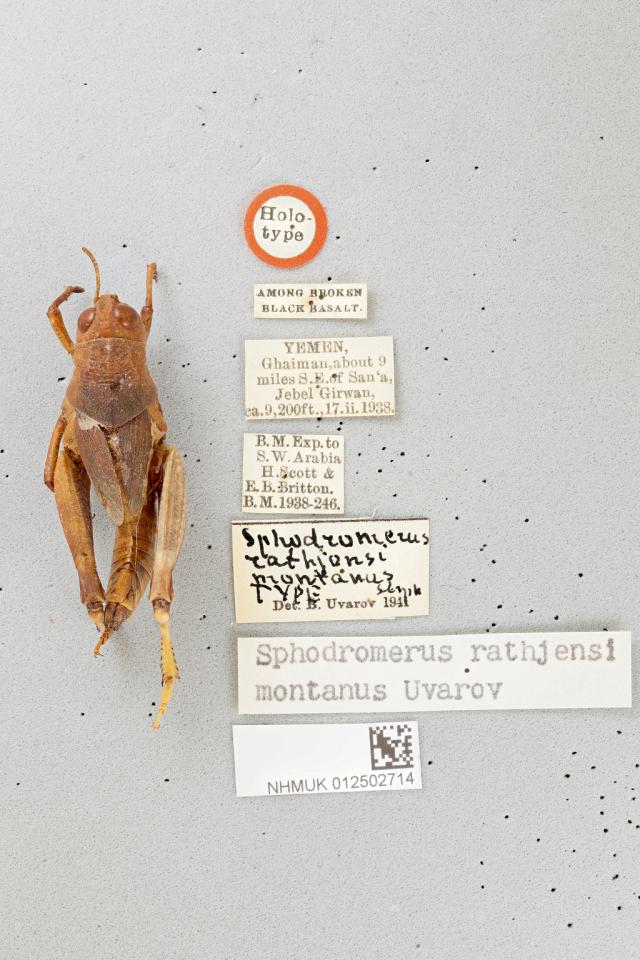 Holo-
type
AMONG BROKEN
BLACK BASALT.
YEMEN,
Ghaiman,about 9
miles S.E.of San'a,
Jebel Girwan,
ca.9,200ft.,17.ii.1938.
B.M.Exp.to
S.W.Arabia
H.Scott &
E.B.Britton.
B.M.1938-246.
Sphodromerus
rathjensi
montanus
TYPE
Det. B. Uvarov 1941
Sphodromerus rathjensi
montanus Uvarov
NHMUK 012502714